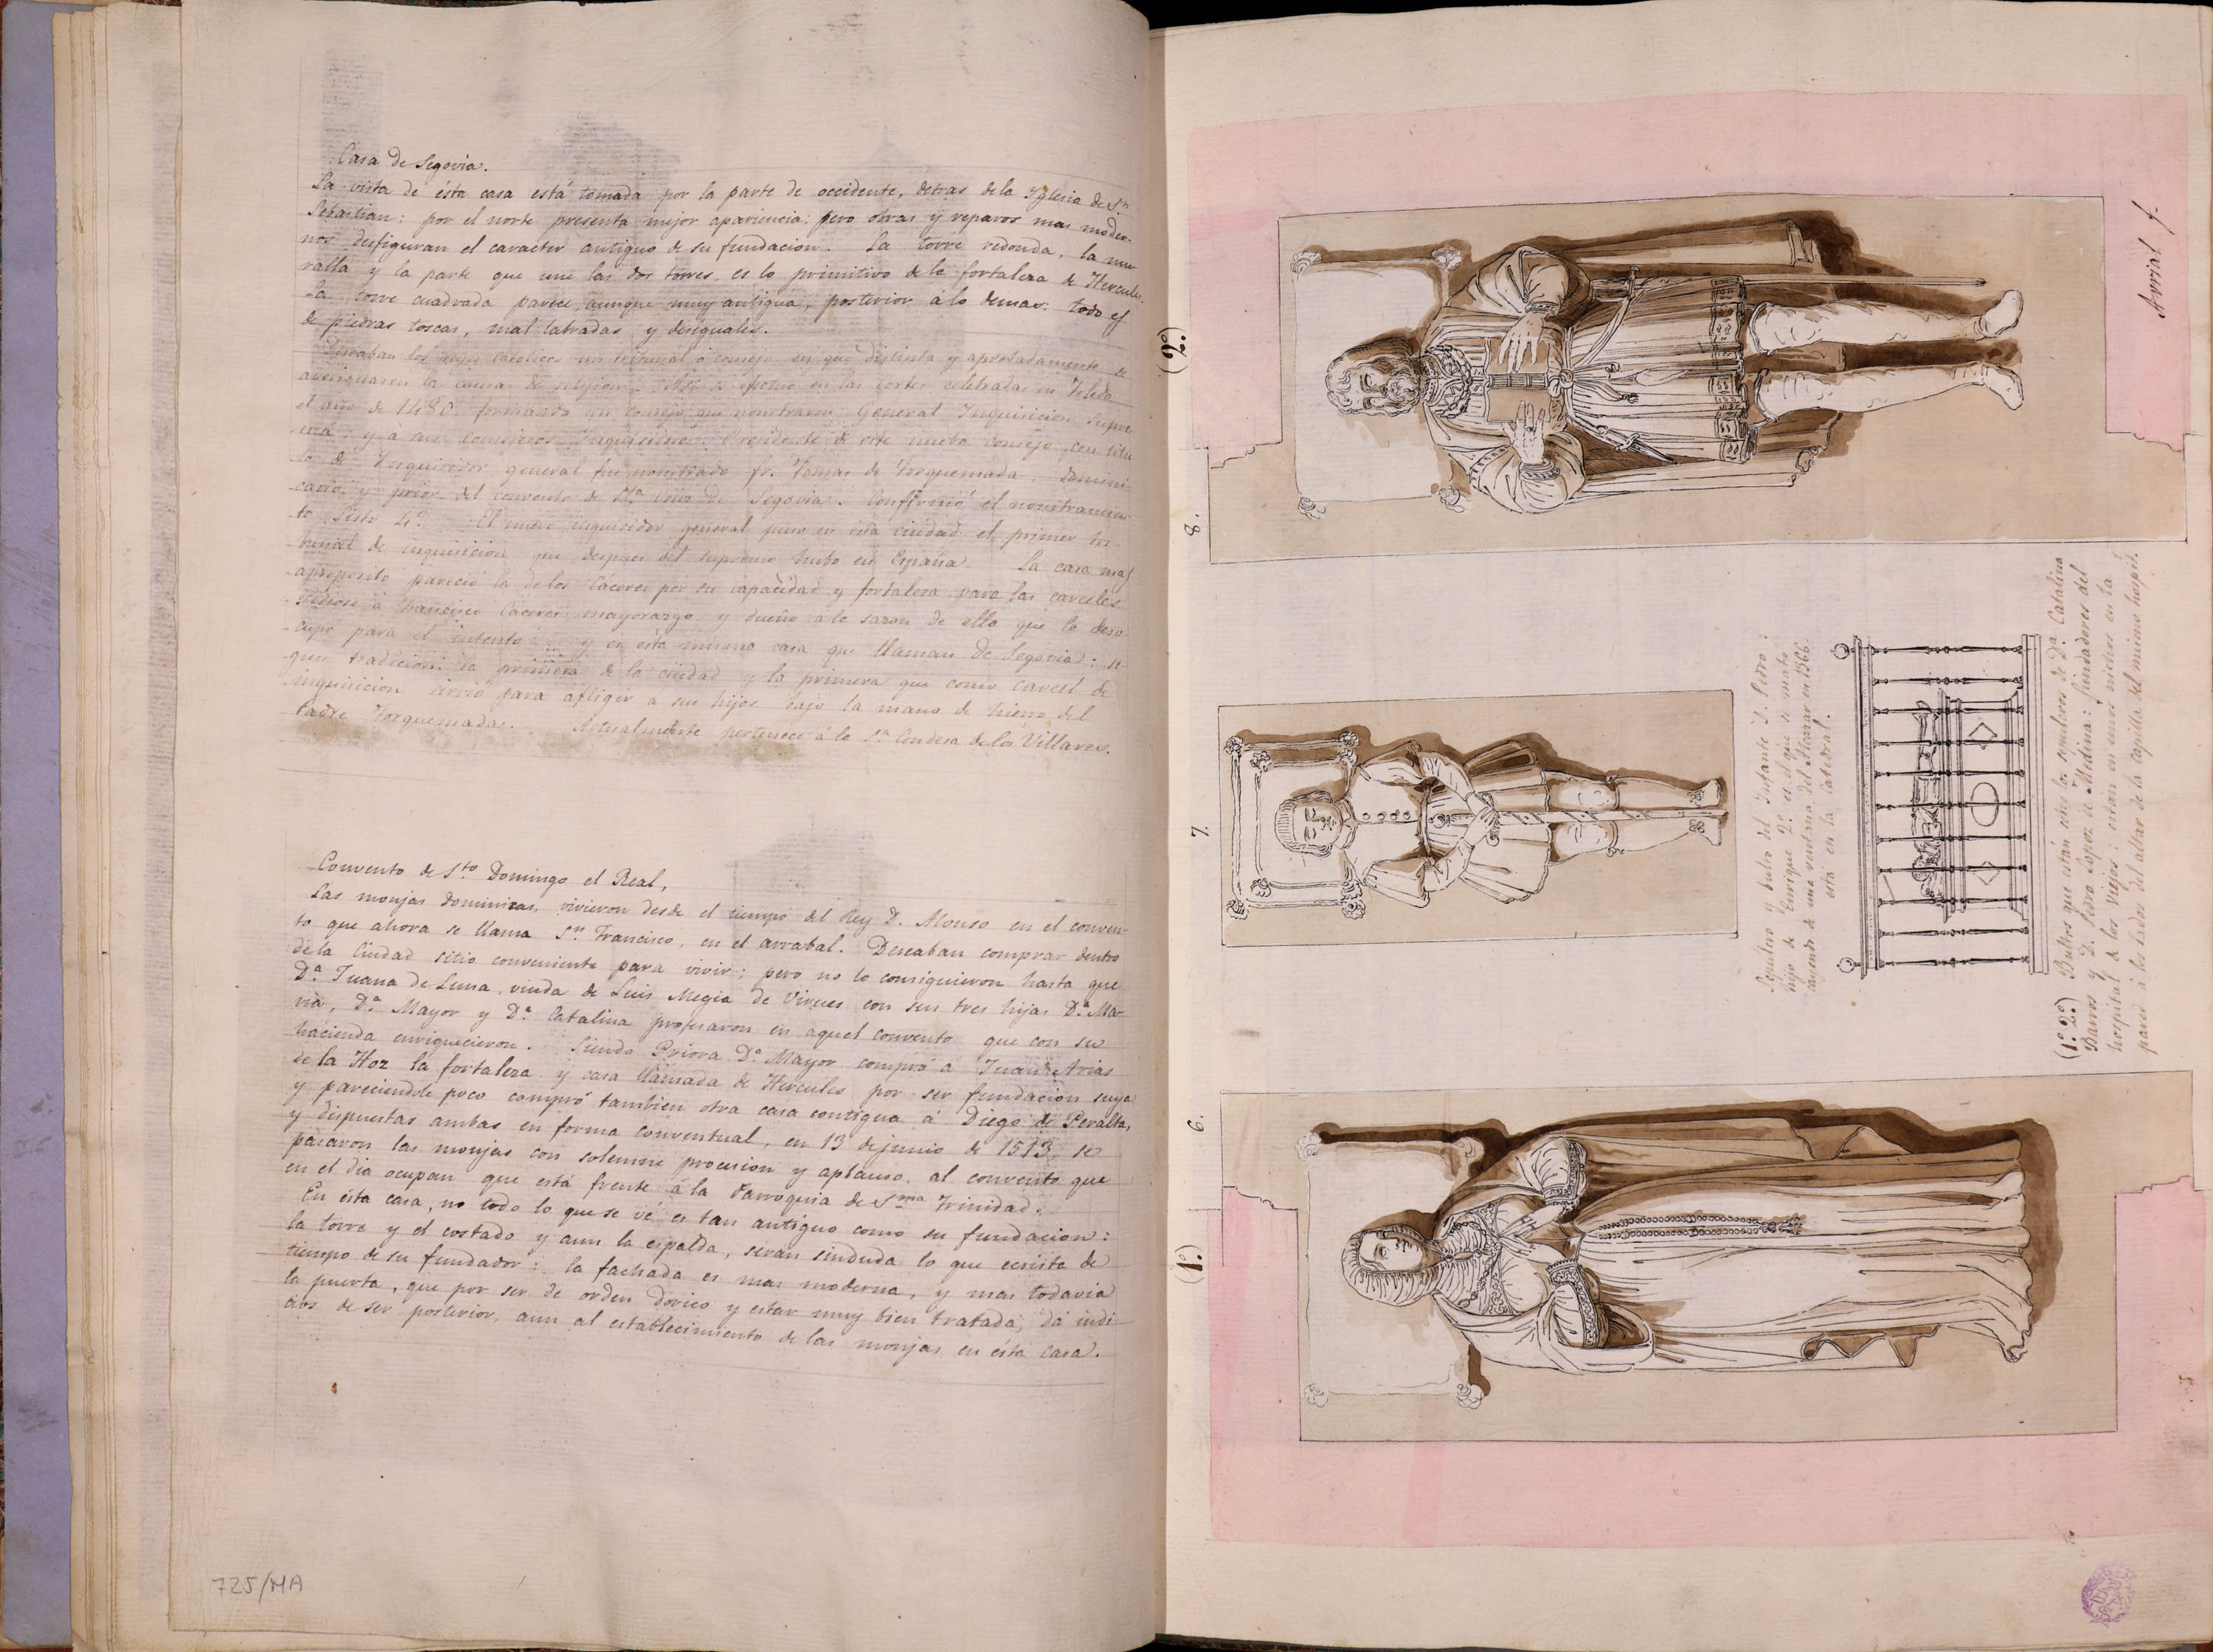 Casa de Segovia.
La vista de ésta casa está tomada por la parte de occidente, detras de la Yglesia de Sn
Sebastian: por el norte presenta mejor apariencia: pero obras y reparos mas moder-
nos desfiguran el caracter antiguo de su fundacion. La torre redonda, la mu-
ralla y la parte que une las dos torres es lo primitivo de la fortaleza de Hercules.
La torre cuadrada parece, aunque muy antigua, posterior á lo demas: todo es
de piedras toscas, mal labradas y desiguales.
los reyes Catolicos un tribunal ó consejo en que distinta y apretadamente se
averiguasen las causas de religion. Asi se efectuó en las Cortes celebradas en Toledo
el año de 1480 formando un consejo que nombraron General Inquisicion Supre
ma, y á sus Consejeros Inquisidores: Presidente de este nuevo Consejo, con titu
lo de Inquisidor general fue nombrado fr. Tomas de Torquemada, domini-
cano, y prior del convento de Sta Cruz de Segovia. Confirmó el nombramien
to Sisto 4º. El nuevo inquisidor general puso en esta ciudad el primer tri-
bunal de inquisicion que despues del supremo hubo en España. La casa mas
aproposito pareció la de los Caceres por su capacidad y fortaleza para las carceles
Pidiose á Francisco Caceres mayorazgo y dueño á la sazon de ella que la deso-
cupe para el intento y es esta misma casa que llaman de Segovia: se-
gun tradicion la primera de la ciudad y la primera que como carcel de
inquisicion sirvió para afligir a sus hijos bajo la mano de hierro del
Padre Torquemada. Actualmente pertenece á la Sa Condesa de los Villares.
Convento de Sto Domingo el Real,
Las monjas dominicas, vivieron desde el tiempo del Rey D. Alonso en el conven-
to que ahora se llama Sn Francisco, en el arrabal. Deseaban comprar dentro
de la Ciudad sitio conveniente para vivir; pero no lo consiguieron hasta que
Da Juana de Luna, viuda de Luis Megia de Virues con sus tres hijas Da Ma-
ria, Da Mayor y Da Catalina profesaron en aquel convento que con su
hacienda enriquecieron. Siendo Priora Da Mayor compró á Juan Arias
de la Hoz la fortaleza y casa llamada de Hercules por ser fundacion suya
y pareciendole poco compró tambien otra casa contigua á Diego de Peralta,
y dispuestas ambas en forma conventual, en 13 de junio de 1513, se
pasaron las monjas con solemne procesion y aplauso, al convento que
en el dia ocupan que está frente á la Parroquia de Sma Trinidad.
En ésta casa, no todo lo que se vé es tan antiguo como su fundacion:
la torre y el costado y aun la espalda, seran sinduda lo que ecsista de
tiempo de su fundador: la fachada es mas moderna, y mas todavia
la puerta, que por ser de orden dorico y estar muy bien tratada, dá indi-
cios de ser posterior, aun al establecimiento de las monjas en ésta casa.
725/MA
(1º.)
6.
7.
8.
(2º.)
Sepulcro y bulto del Infante D. Pedro:
hijo de Enrique 2º. es el que se mató
cayendo de una ventana del Alcazar en 1366.
está en la Catedral.
(1º. 2º.) Bultos que están sobre los sepulcros de Da. Catalina
Barros y D. Pedro Lopez de Medina: fundadores del
hospital de los Viejos: están en unos nichos en la
pared á los lados del altar de la capilla del mismo hospil.
Avrial f.